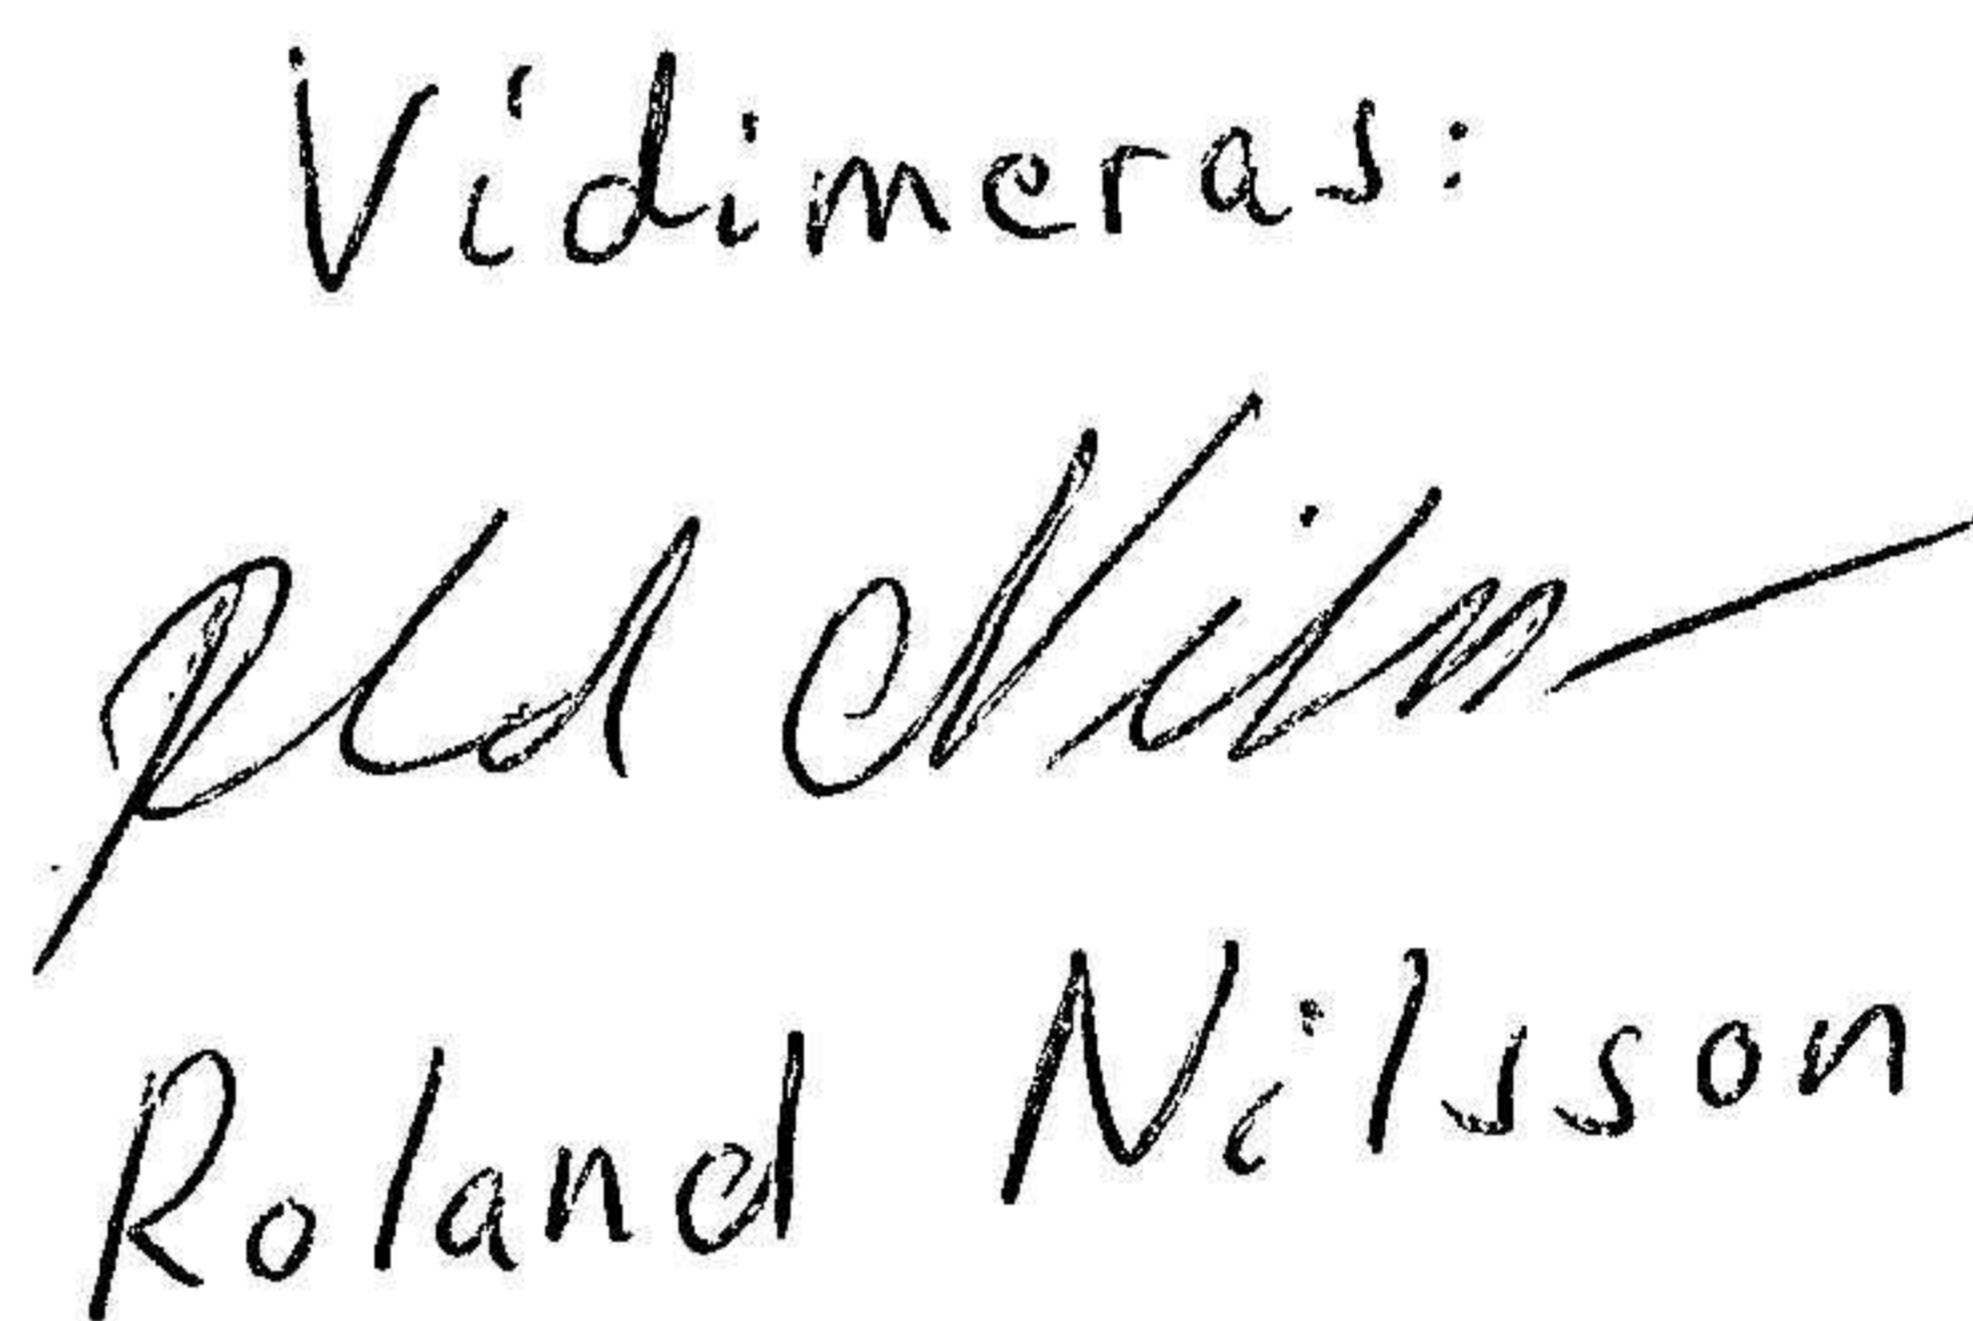 Vidimeras:
Roland Nilsson